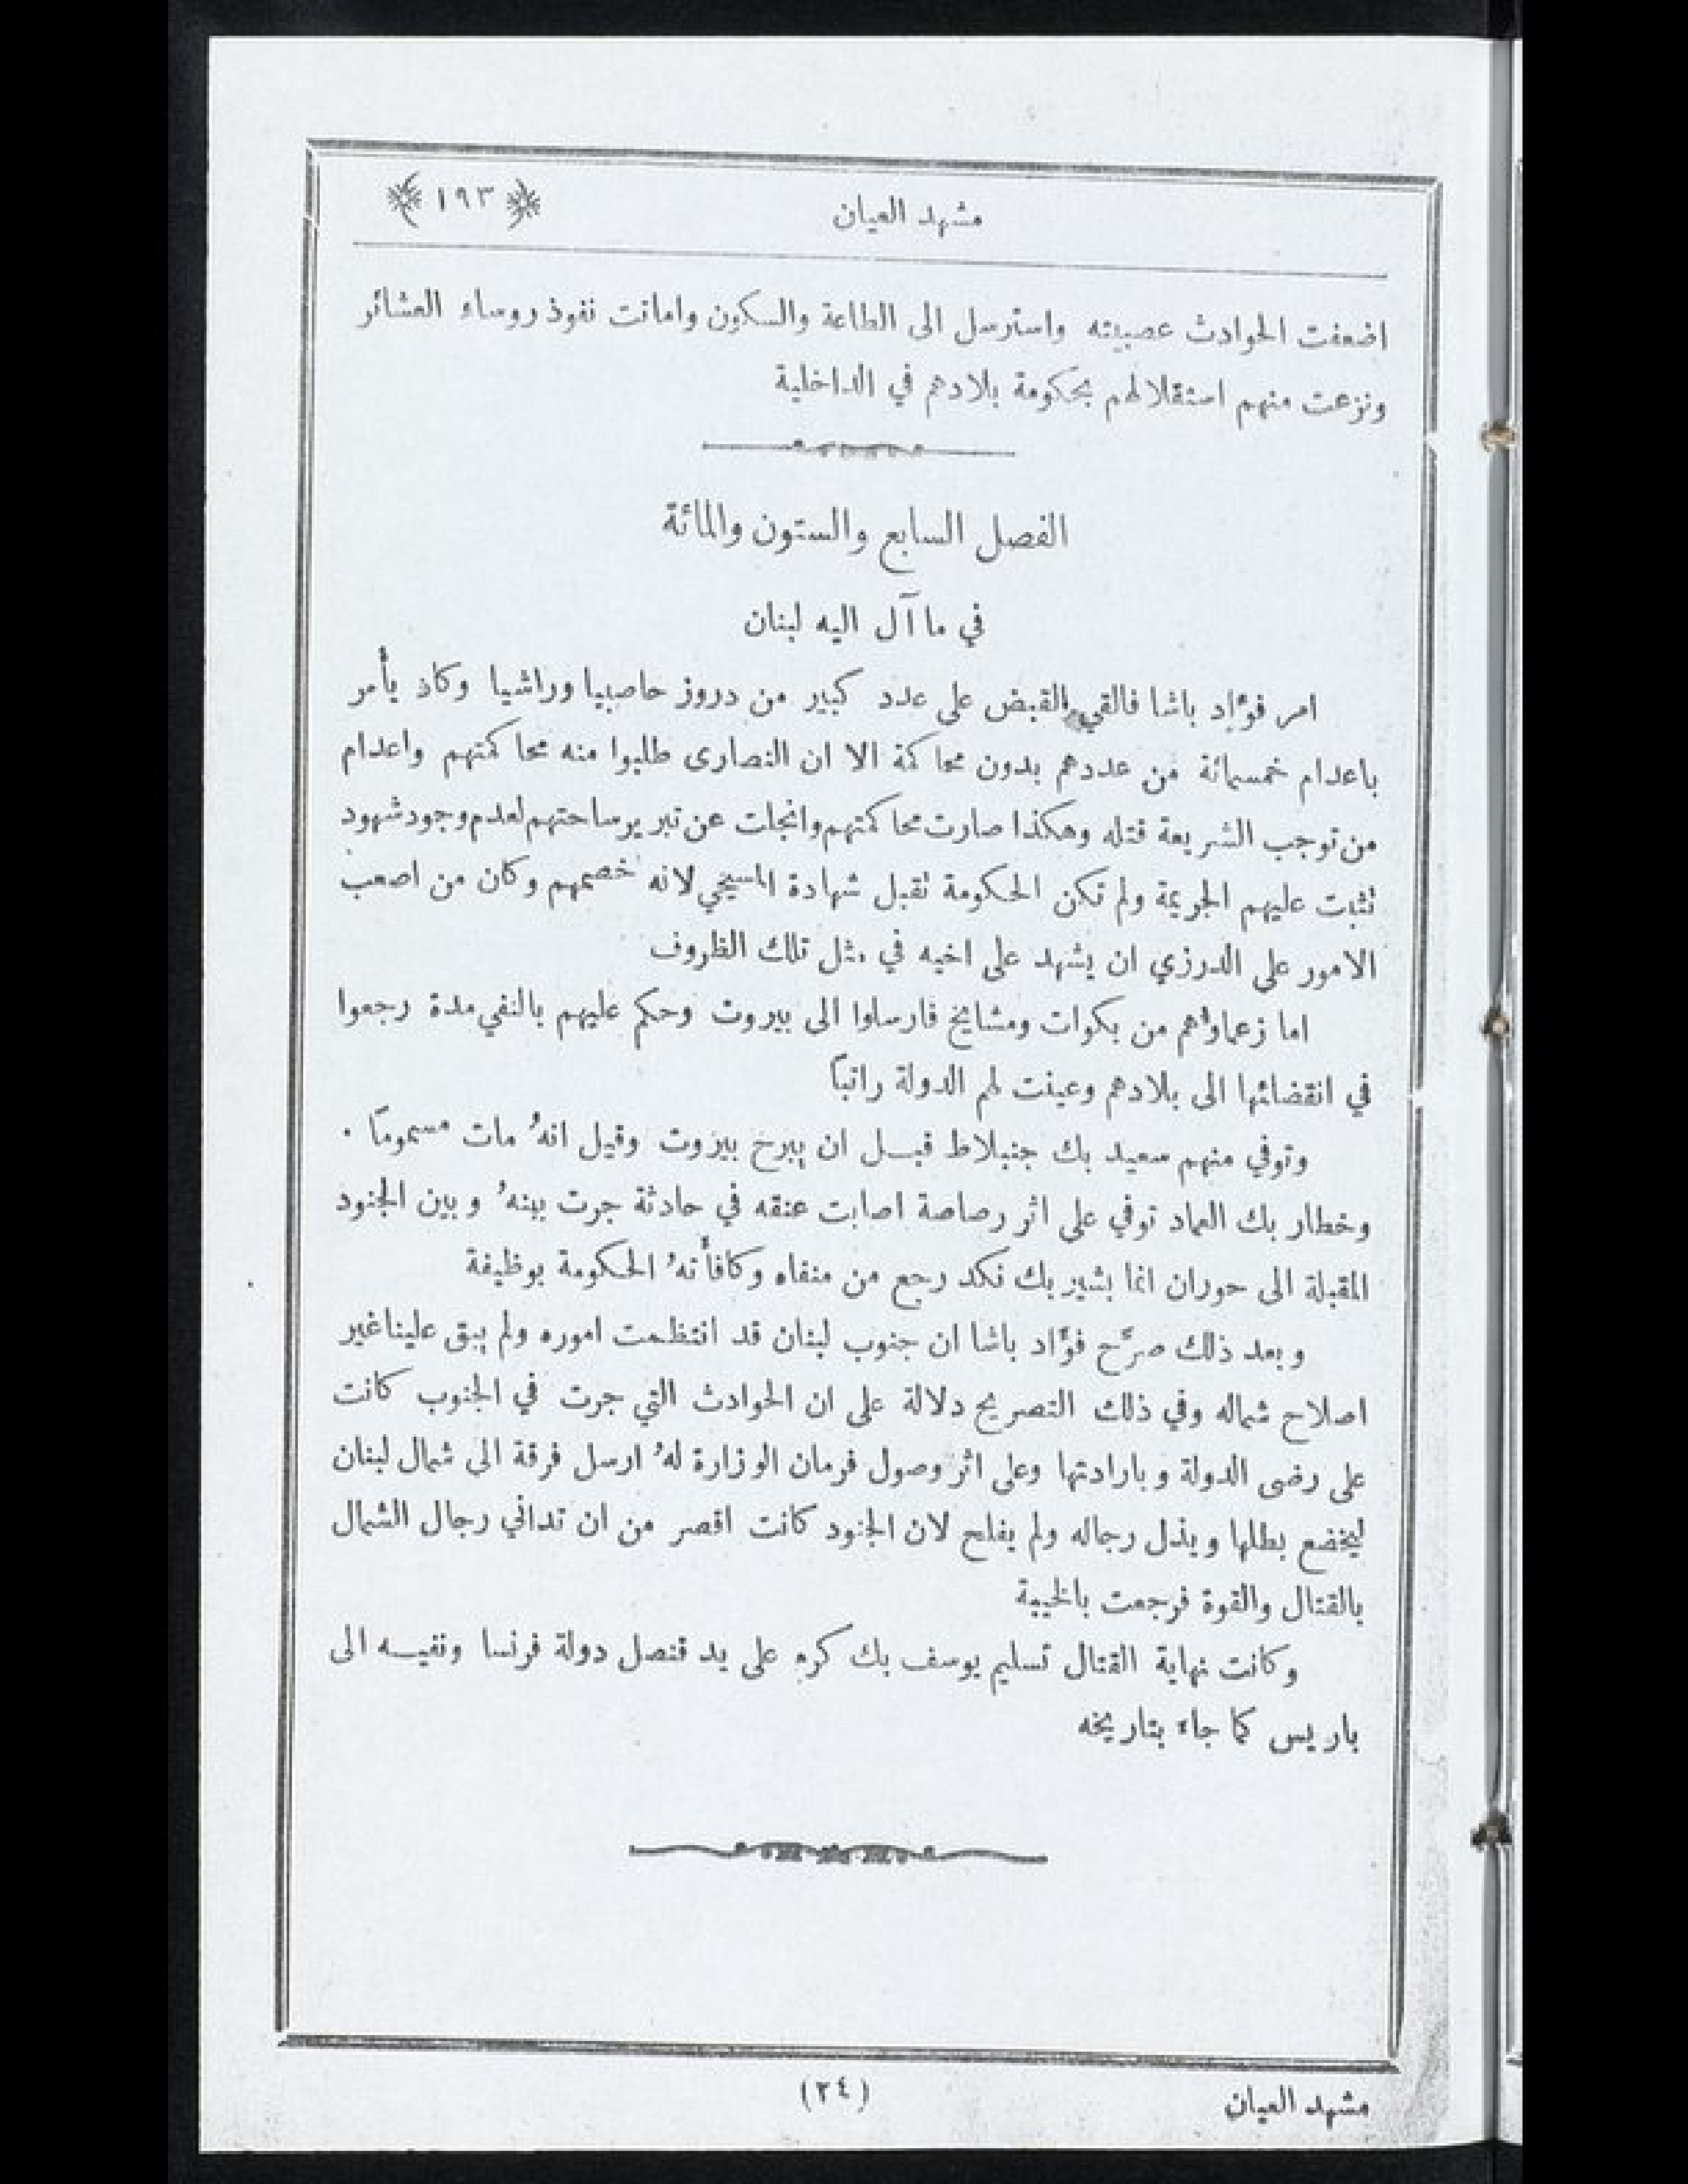 مشهد العيان ﴿ ١٩٣ ﴾
اضعفت الحوادث عصبيته واسترسل الى الطاعة والسكون وامانت نفوذ روساء العشائر
ونزعت منهم استقلالهم بحكومة بلادهم في الداخلية
الفصل السابع والستون والمائة
في ما آل اليه لبنان
امر فؤاد باشا فالقي القبض على عدد كبير من دروز حاصبيا وراشيا وكاد يأمر
باعدام خمسمائة من عددهم بدون محاكمة الا ان النصارى طلبوا منه محاكمتهم واعدام
من توجب الشريعة قتله وهكذا صارت محاكمتهم وانجلت عن تبرير ساحتهم لعدم وجود شهود
تثبت عليهم الجريمة ولم تكن الحكومة تقبل شهادة المسيحي لانه خصمهم وكان من اصعب
الامور على الدرزي ان يشهد على اخيه في مثل تلك الظروف
اما زعماؤهم من بكوات ومشايخ فارسلوا الى بيروت وحكم عليهم بالنفي مدة رجعوا
في انقضائها الى بلادهم وعينت لهم الدولة راتباً
وتوفي منهم سعيد بك جنبلاط قبل ان يبرح بيروت وقيل انهُ مات مسموماً ٠
وخطار بك العماد توفي على اثر رصاصة اصابت عنقه في حادثة جرت بينهُ وبين الجنود
المقبلة الى حوران انما بشير بك نكد رجع من منفاه وكافأتهُ الحكومة بوظيفة
وبعد ذلك صرَّح فؤاد باشا ان جنوب لبنان قد انتظمت اموره ولم يبق علينا غير
اصلاح شماله وفي ذلك التصريح دلالة على ان الحوادث التي جرت في الجنوب كانت
على رضى الدولة وبارادتها وعلى اثر وصول فرمان الوزارة لهُ ارسل فرقة الى شمال لبنان
ليخضع بطلها ويذل رجاله ولم يفلح لان الجنود كانت اقصر من ان تداني رجال الشمال
بالقتال والقوة فرجعت بالخيبة
وكانت نهاية القتال تسليم يوسف بك كرم على يد قنصل دولة فرنسا ونفيه الى
باريس كما جاء بتاريخه
مشهد العيان (٢٤)